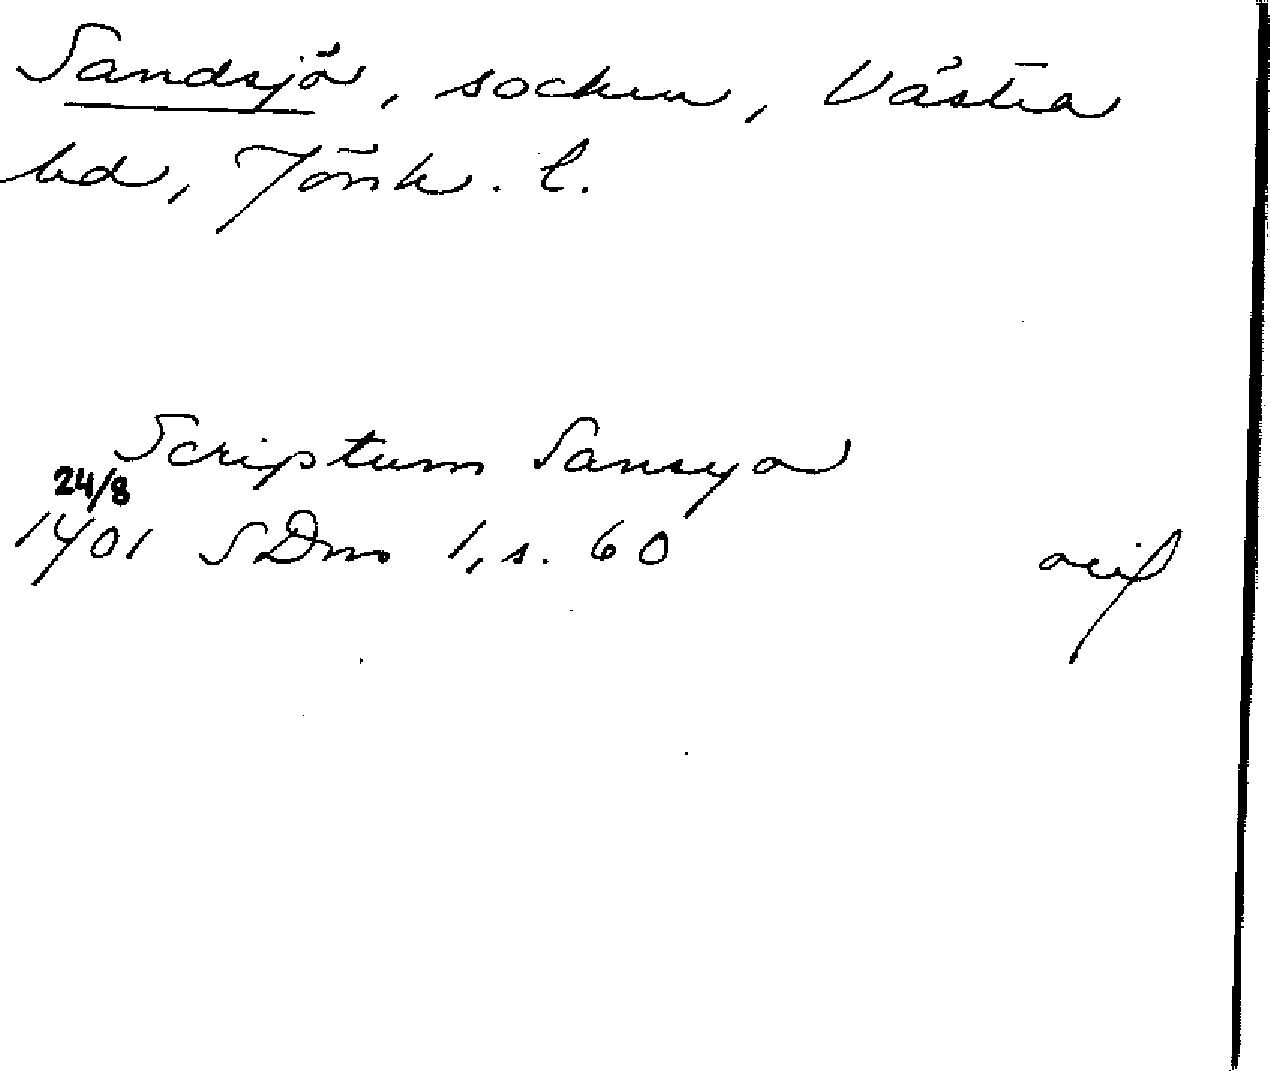 Sandsjö, socken, Västra
hd, Jönk. l.
Scriptum Sansyo
24/8
1401 SDns 1, s. 60
orig